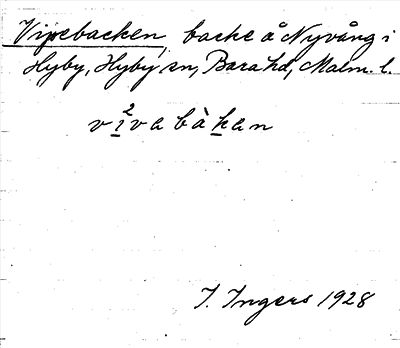 Vipebacken, backe å Nyvång i
Hyby, Hyby sn, Bara hd, Malm. l.
v²i̱vabàḵan
I. Ingers 1928